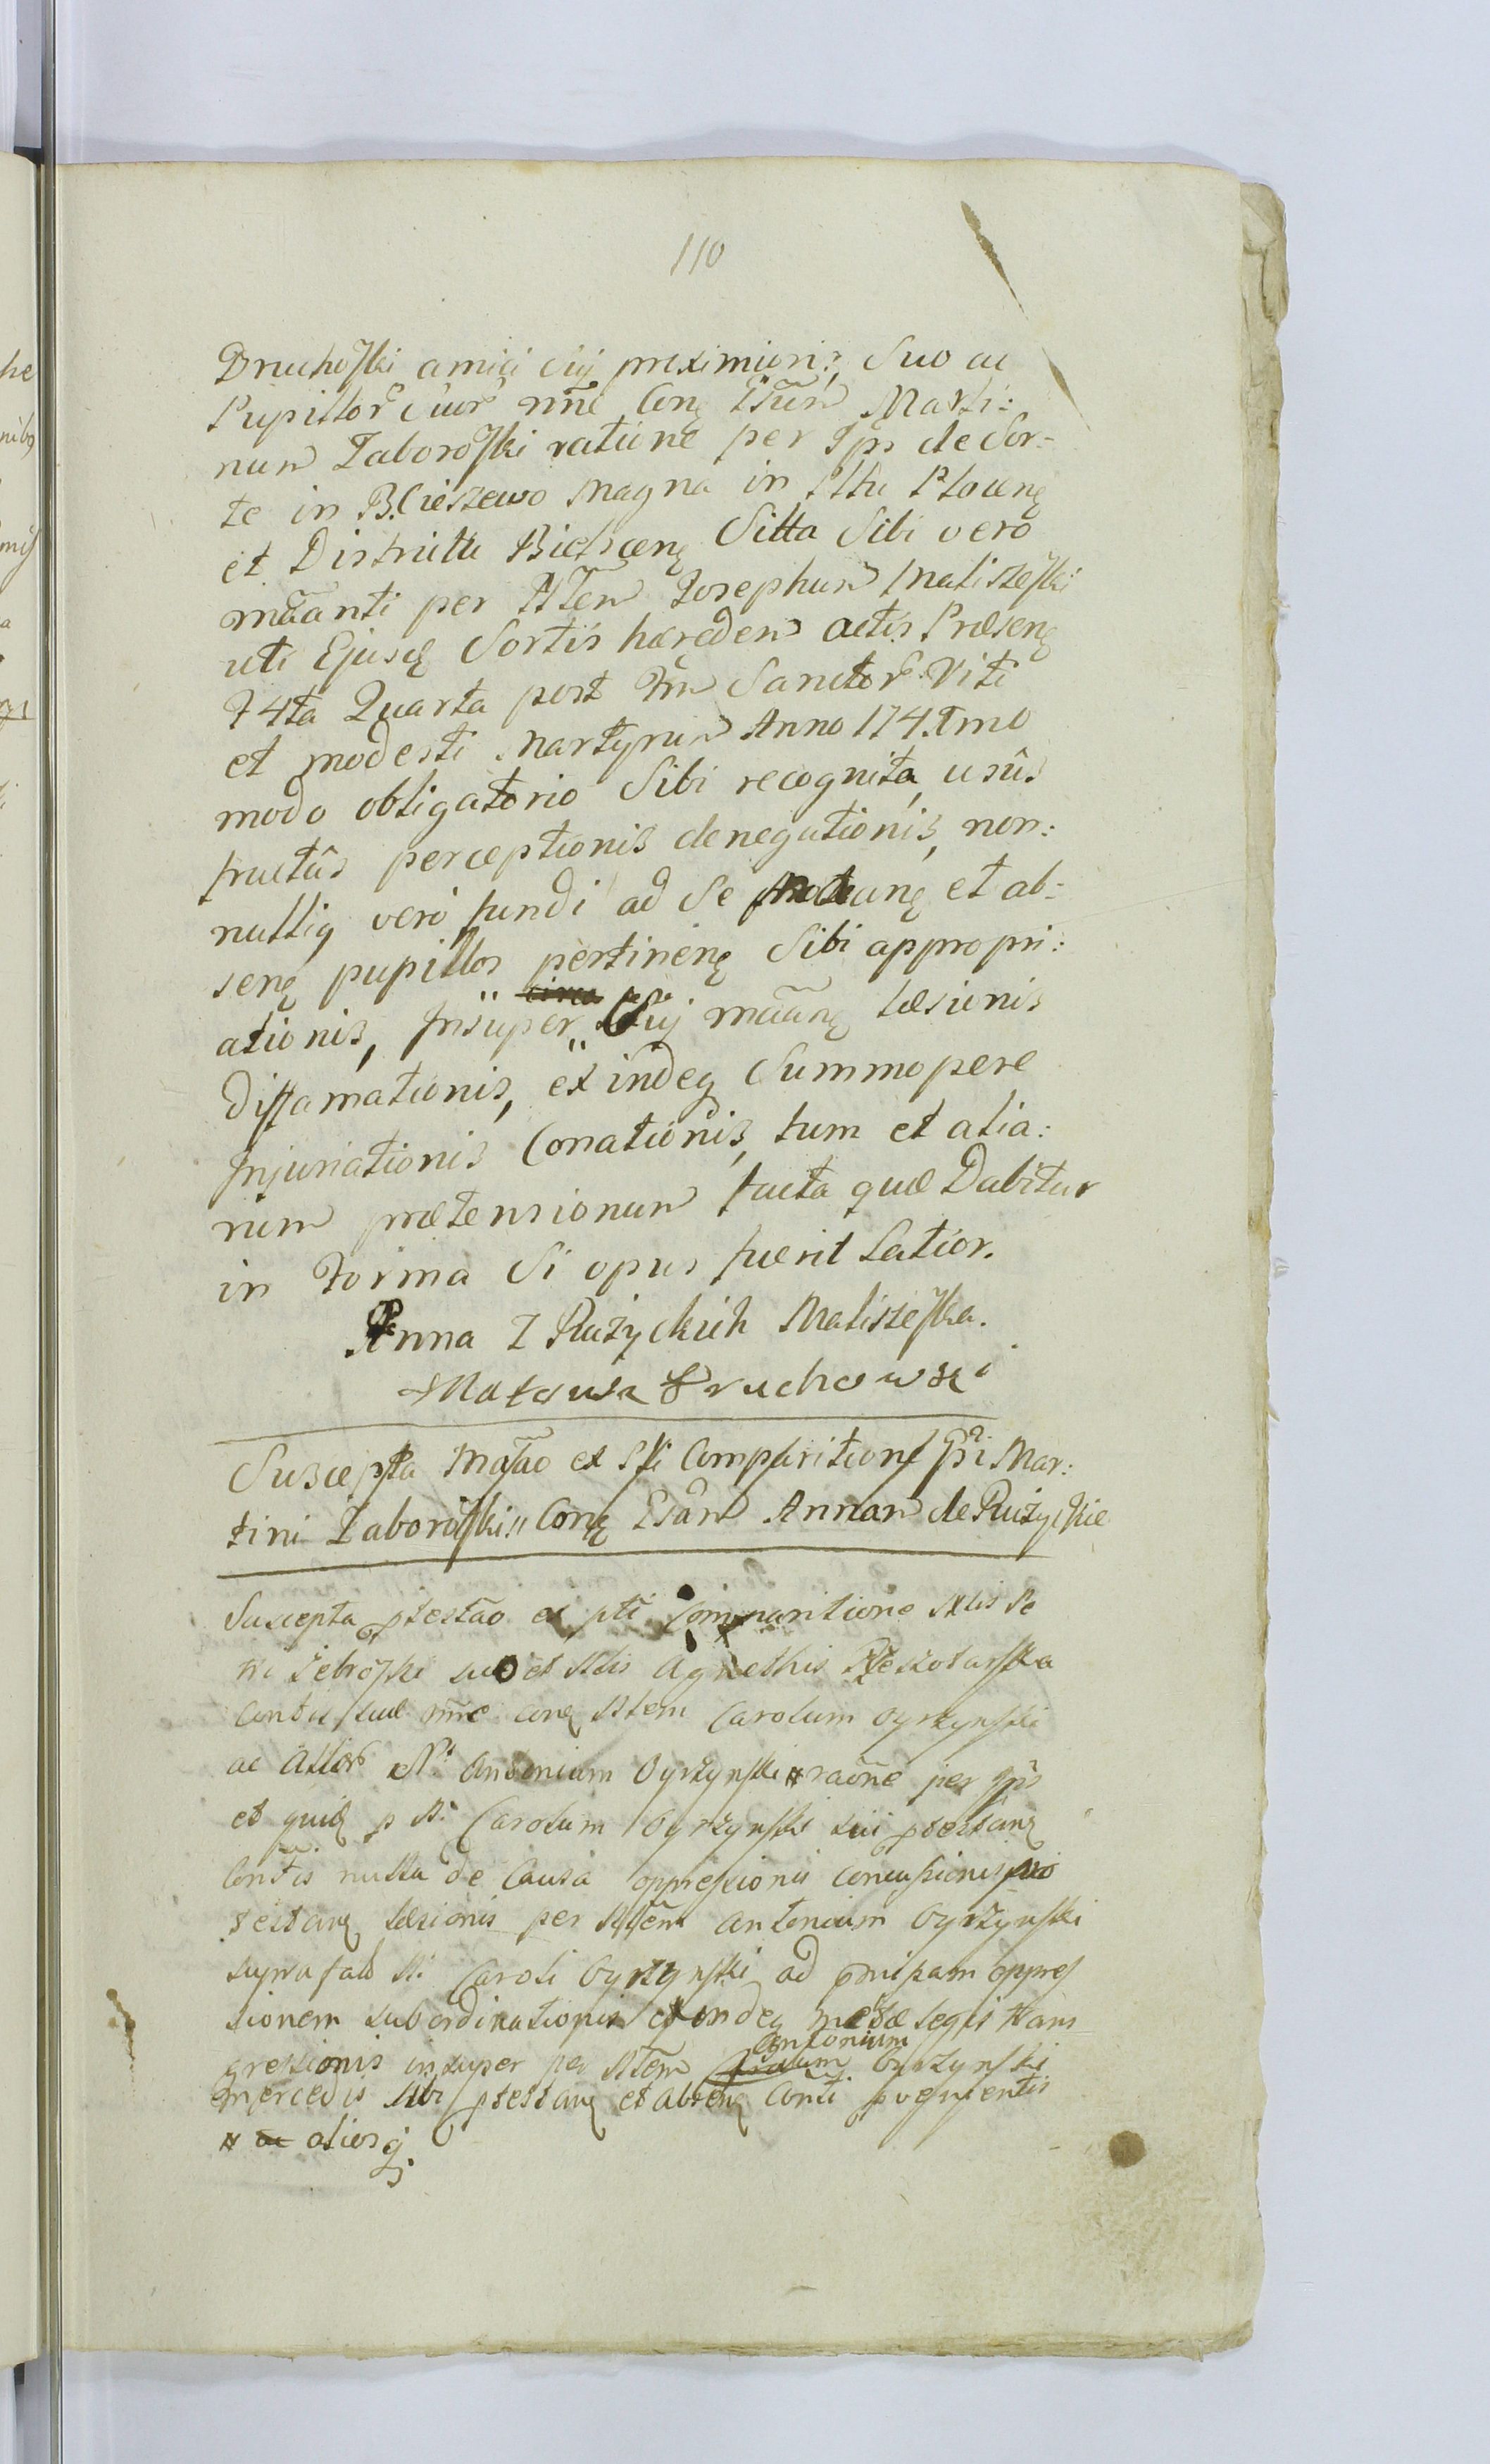 110
Druchoski amici sui proximiori: Suo ac
Pupillor suor nne Cong Gsum Marti:
num Zaboroski ratione per Ips de Sor-
te in B.Cieszewo Magna in Pttu Plocens
et Districtu Bielscens Sitta Sibi vero
maanti per Nlem Josephum Maliszeski
uti Ejusq Sortis haeredem actis Praesens
F 4ta Quarta post Fm Sanctor Viti
et modesti Martyrum Anno 174.Tmo
modo obligatorio Sibi recognita, usûs
fructûs perceptionis denegationis, non:
nullig vero fundi ad Se et ab:
sens pupillos pertinens Sibi appropri:
ationis, Insuper circa Sui maang laesionis
Diffamationis, exindeq Summopere
Injuriationis Conationis, tum et alia:
rum praetensionum facta quae Dabitur
in Forma Si opus fuerit Latior.
Anna Z Rużyckich Maliszeska.
Mateusz Druchowski
Suscepta Mafao ex Pti Comparitione Gsi Mar:
tini Zaboroski" Cong Gsam Annam de Rużyckie
Suscepta ptestao ex pti Comparitione Nlis Pe
tri Zebroski suo et Nlis Agnethis
Contis suae nne cong Nlem Carolum Gyrzynski
ac Allor N: Antonium Gyrzynski # raone per Ips
et quidq p N: Carolum Gyrzynski sui ptestang
Contis nulla de Causa oppressionis concussionis pro
testang laesionis per Nlem Antonium Gyrzynski
suprafati N: Caroli Gyrzynski ad pmissam oppres
sionem subordinationis exindeq Legis trans
gressionis insuper per Nlem Antonium Gyrzynski
mercedis sibi ptestang et absens Conti pvenientis
# ac aliorq